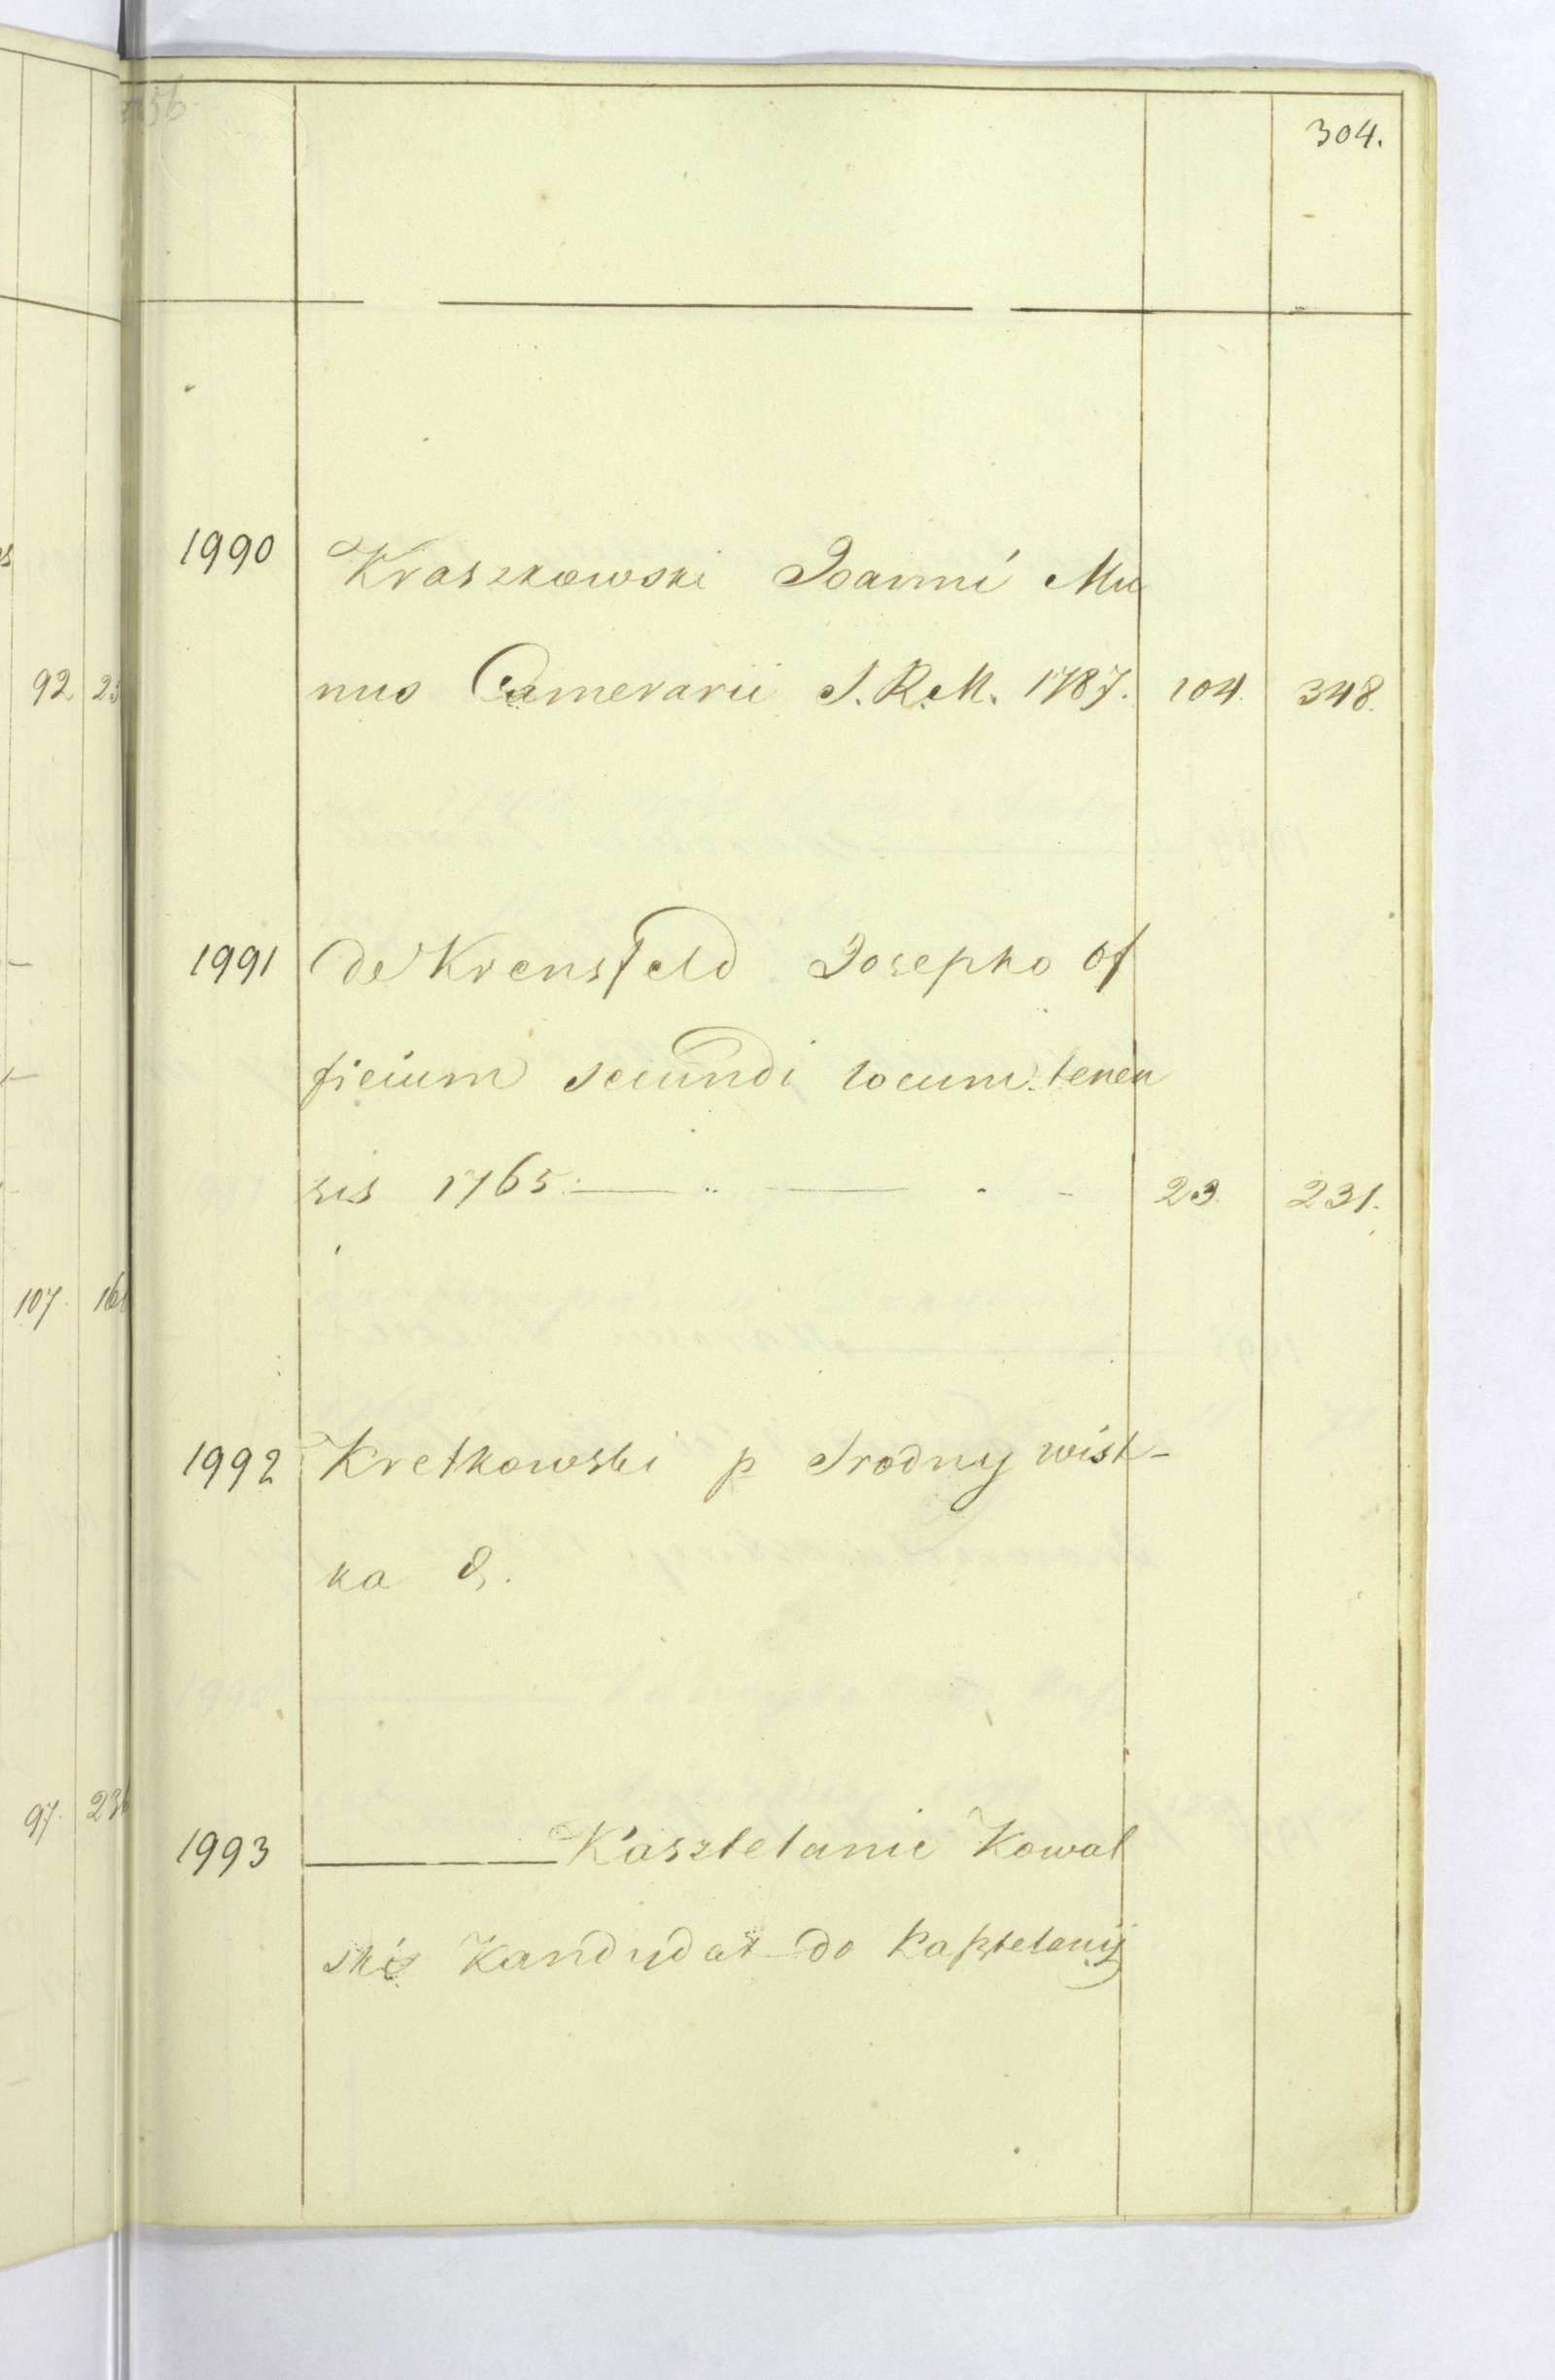 304.
1990 Kraszkowski Joanni Mu
nus Camerarii S.R.M. 1787. 104. 348.
1991 de Krensfeld Josepho of
ficium secundi locum tenen
sis 1765. — .. — . - 23. 231.
1992 Kretkowski p Srodny wist-
ka
1993 ——— Kasztelanic Kowal
ski Kandydat do Kasztelanij
92 23
107. 168
97. 236